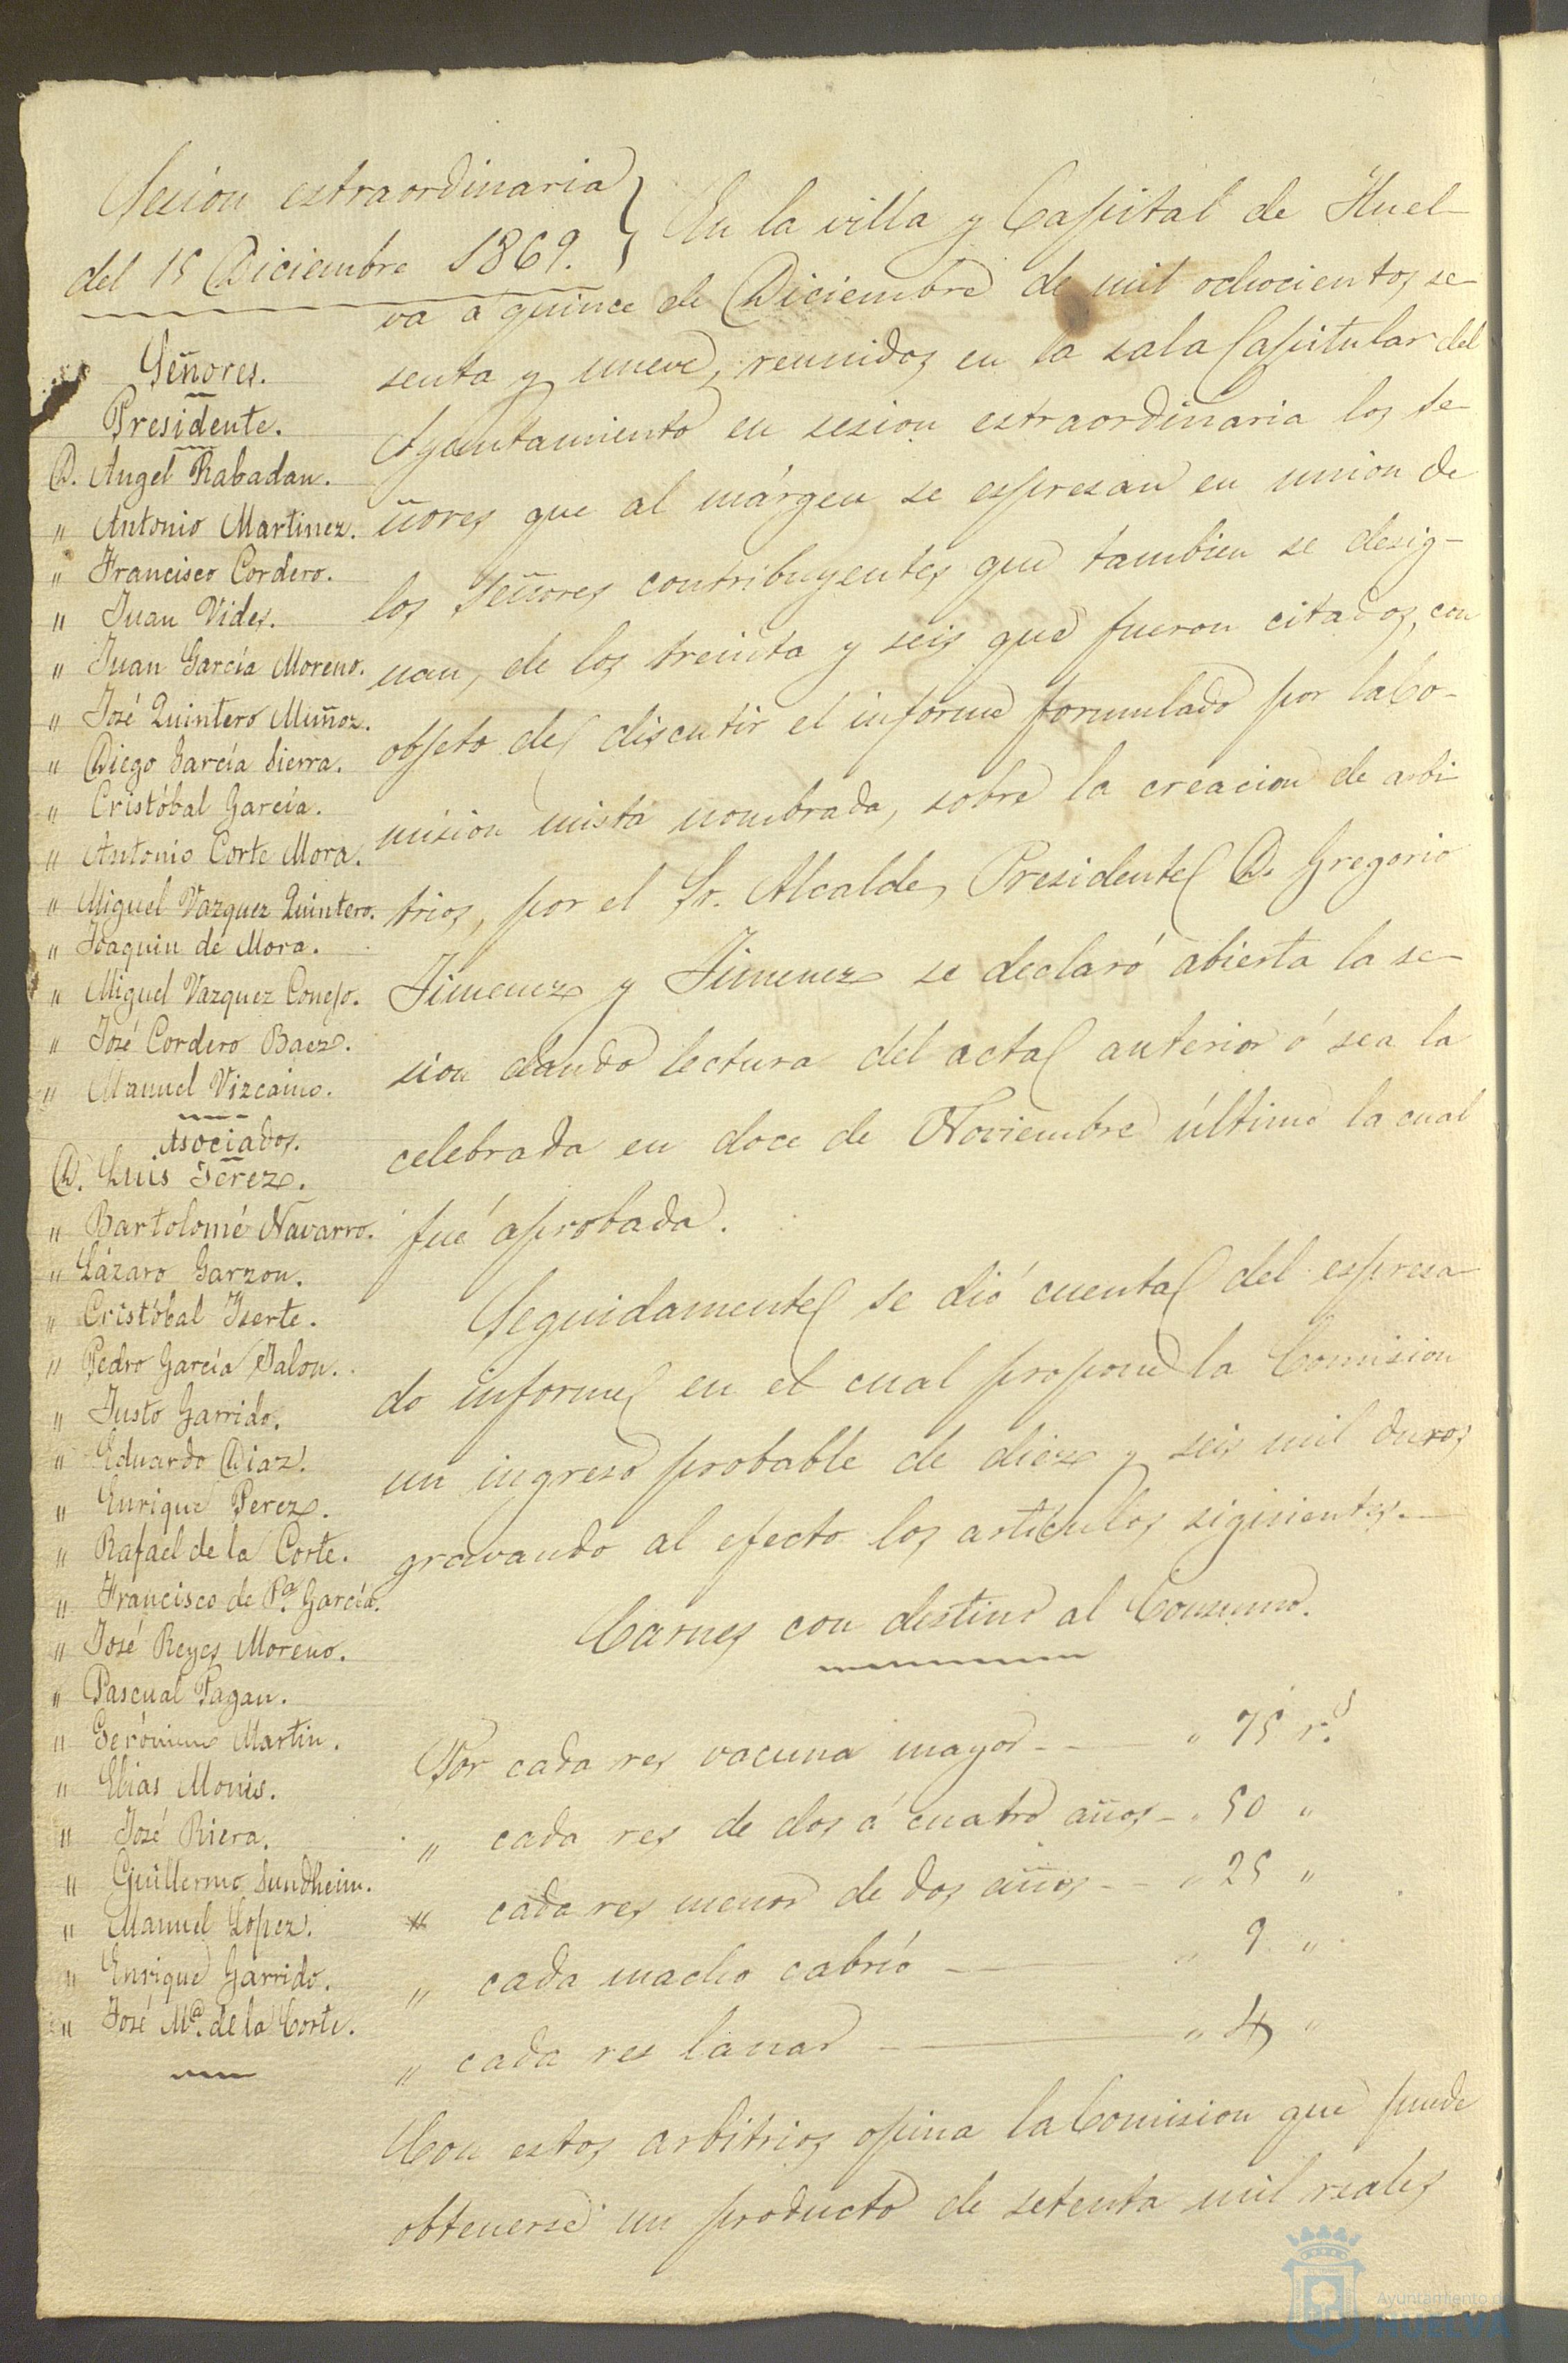 Sesion estraordinaria
del 15 Diciembre 1869.
Señores.
Presidente.
D. Angel Rabadan.
" Antonio Martinez.
" Francisco Cordero.
" Juan Vides.
" Juan García Moreno.
" José Quintero Muñoz.
" Diego García Sierra.
" Cristóbal García.
" Antonio Corte Mora.
" Miguel Vazquez Quintero.
" Joaquin de Mora.
" Miguel Vazquez Conejo.
" José Cordero Baez.
" Manuel Vizcaino.
Asociados.
D. Luis Jerez.
" Bartolomé Navarro.
" Lázaro Garzon.
" Cristóbal Iserte.
" Pedro García Jalon.
" Justo Garrido.
" Eduardo Diaz.
" Enrique Perez.
" Rafael de la Corte.
" Francisco de Pª. García.
" José Reyes Moreno.
" Pascual Pagan.
" Gerónimo Martin.
" Elias Monis.
" José Riera.
" Guillermo Sundheim.
" Manuel Lopez.
" Enrique Garrido.
" José Mª. de la Corte.
En la villa y Capital de Huel-
va á quince de Diciembre de mil ochocientos se-
senta y nueve, reunidos en la sala Capitular del
Ayuntamiento en sesion estraordinaria los Se-
ñores que al márgen se espresan en union de
los Señores contribuyentes que tambien se desig-
nan, de los treinta y seis que fueron citados, con
objeto de discutir el informe formulado por la Co-
mision mista nombrada, sobre la creacion de arbi-
trios, por el Sr. Alcalde Presidente D. Gregorio
Jimenez y Jimenez se declaró abierta la se-
sion dando lectura del acta anterior ó sea la
celebrada en doce de Noviembre último la cual
fué aprobada.
Seguidamente se dió cuenta del espresa-
do informe en el cual propone la Comision
un ingreso probable de diez y seis mil duros
gravando al efecto los artículos siguientes.
Carnes con destino al Consumo.
Por cada res vacuna mayor " 75 r.s
" cada res de dos á cuatro años " 50 "
" cada res menor de dos años " 25 "
" cada macho cabrío " 9 "
" cada res lanar " 4 "
Con estos arbitrios opina la Comision que puede
obtenerse un producto de setenta mil reales
Ayuntamiento de
HUELVA